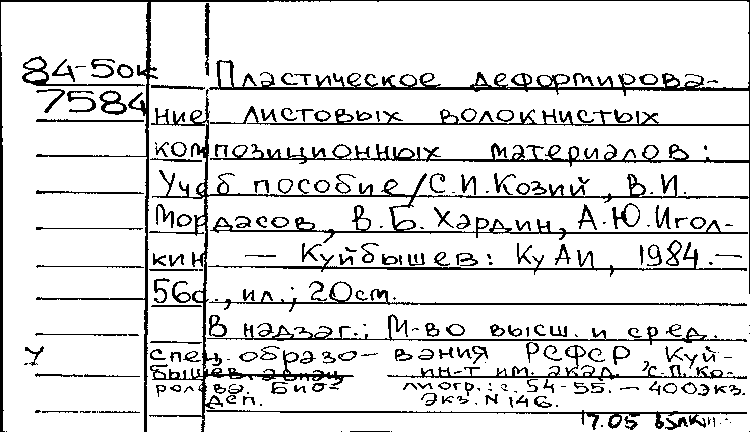 84-5ок
7584
Пластическое деформирова-
ние листовых волокнистых
композиционных материалов:
Учеб. пособие/С.И.Козий, В.И.
Мордасов, В.Б.Хардин, А.Ю.Игол-
кин — Куйбышев: КуАИ, 1984.—
56с., ил.; 20см.
В надзаг.: М-во высш. и сред.
У спец. образо- вания РСФСР, Куй-
бышев. авиац. ин-т им. акад. С.П.Ко-
ролева. Биб- лиогр.: с. 54-55. — 400экз.
Деп. экз. N 146.
17.05